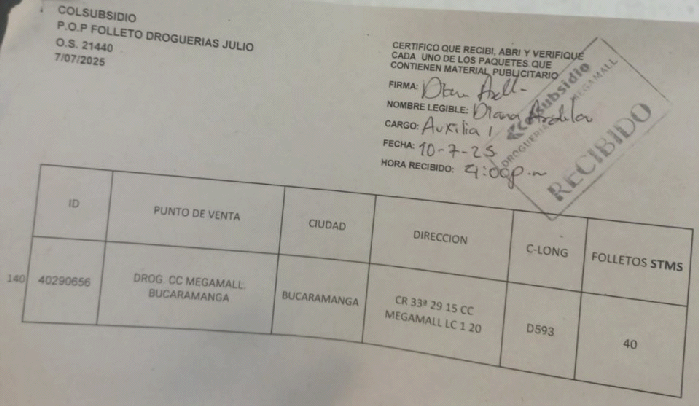 COLSUBSIDIO
P.O.P FOLLETO DROGUERIAS JULIO
O.S. 21440
7/07/2025
CERTIFICO QUE RECIBI, ABRI Y VERIFIQUE
CADA UNO DE LOS PAQUETES QUE
CONTIENEN MATERIAL PUBLICITARIO
FIRMA: Diana
NOMBRE LEGIBLE: Diana
CARGO: Auxilia 1
FECHA: 10-7-25
HORA RECIBIDO: 4:00p.m
Colsubsidio
MEGAMALL
RECIBIDO
ID PUNTO DE VENTA CIUDAD DIRECCION C-LONG FOLLETOS STMS
140 40290656 DROG. CC MEGAMALL BUCARAMANGA BUCARAMANGA CR 33ª 29 15 CC MEGAMALL LC 1 20 D593 40